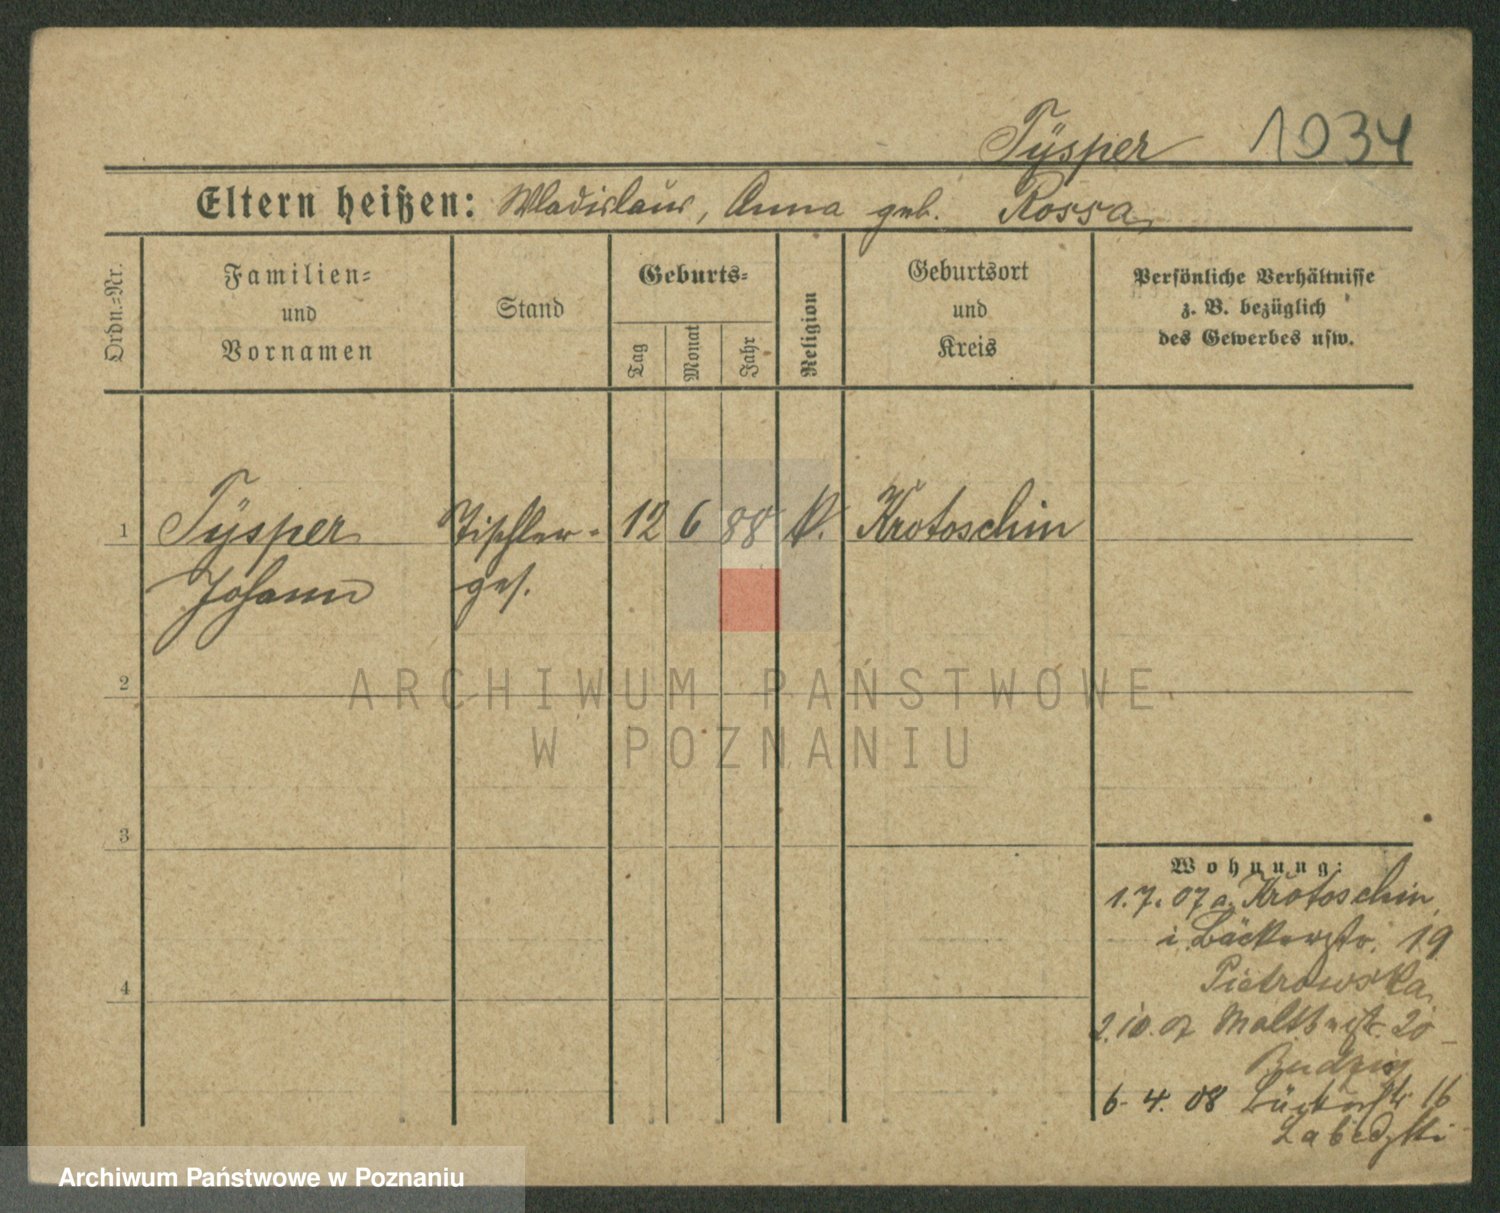 Tÿsper 1034
Eltern heißen: Wladislaus, Anna geb. Rossa
Ordn.=Nr.
Familien=
und
Vornamen
Stand
Geburts=
Tag
Monat
Jahr
Religion
Geburtsort
und
Kreis
Persönliche Verhältnisse
z. B. bezüglich
des Gewerbes usw.
1 Tÿsper Tischler- 12 6 88 k. Krotoschin
Johann ges.
2
3
4
Wohnung:
1.7.07 a. Krotoschin
i. Bäckerstr. 19
Pietrowska
2.10.07 20
6.4.08 16
ARCHIWUM PAŃSTWOWE
W POZNANIU
Archiwum Państwowe w Poznaniu